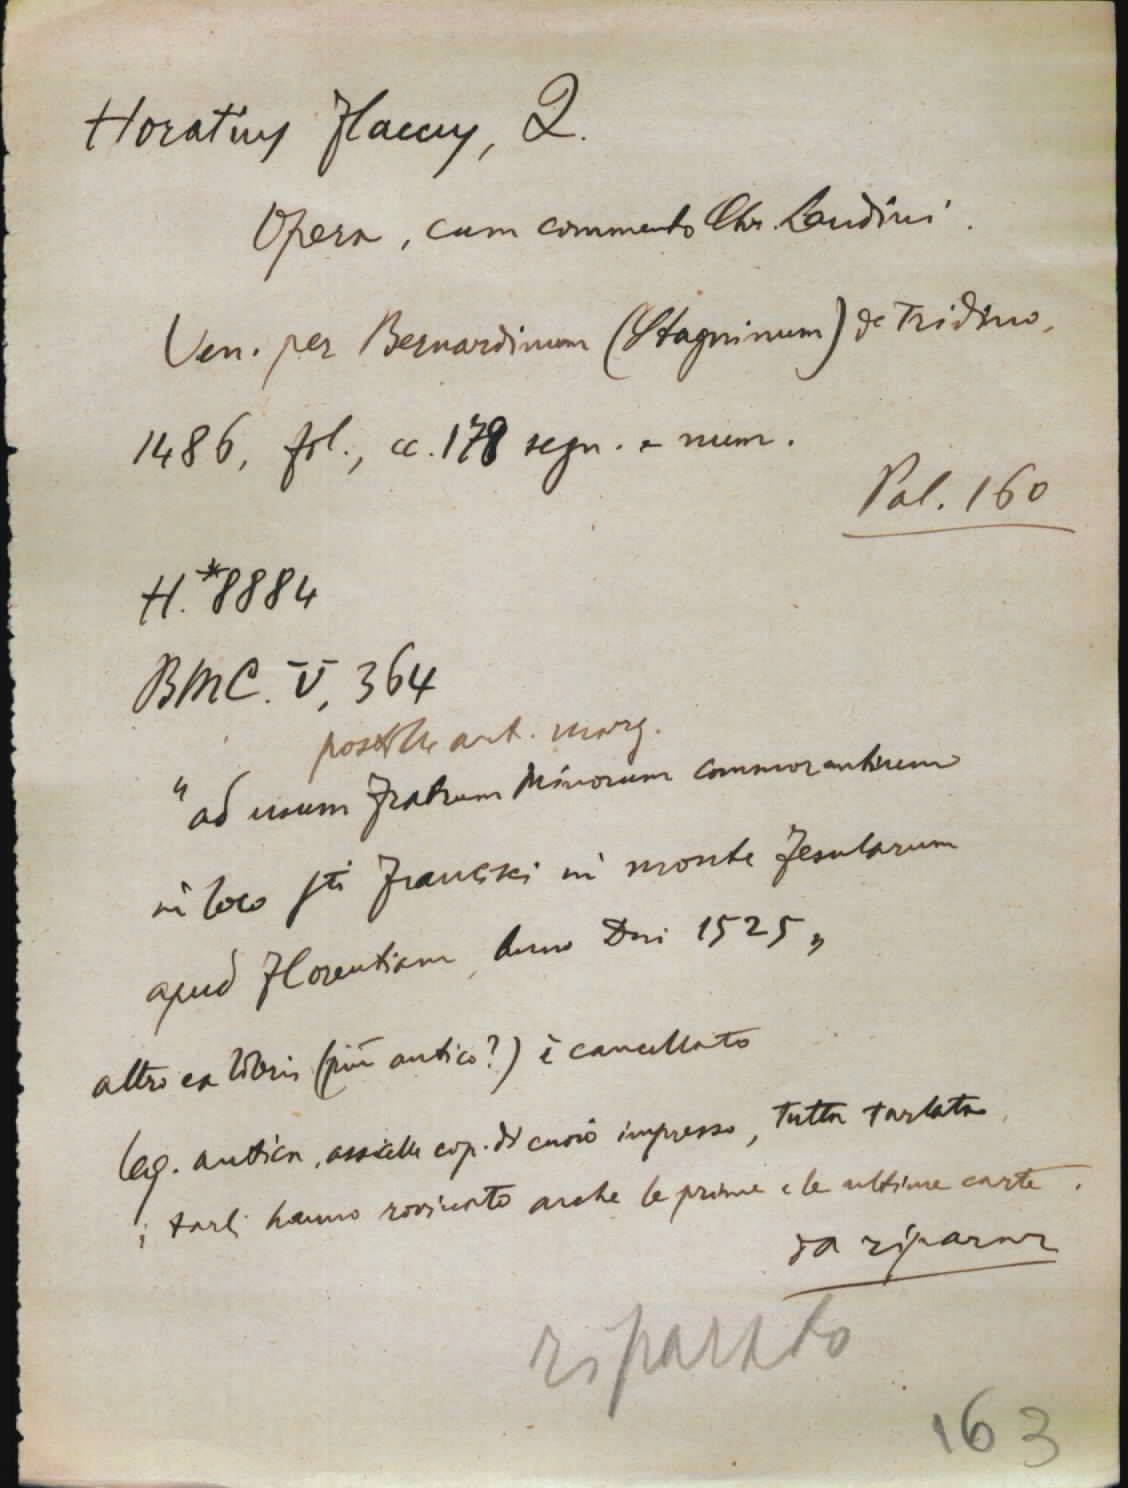 Horatius Flaccus, Q.
Opera, cum commento Chr. Landini.
Ven. per Bernardinum (Stagninum) de Tridino,
1486, fol., cc. 178 segn. e num.
Pal. 160
H. *8884
BMC. V, 364
postille ant. marg.
"ad usum Fratrum Minorum commorantium
in loco Sti Francisci in monte Fesularum
apud Florentiam, Anno Dni 1525"
altro ex libris (più antico?) è cancellato
leg. antica, assicelle cop. di cuoio impresso, tutta tarlata,
i tarli hanno rovinato anche le prime e le ultime carte.
da riparare
riparato
163